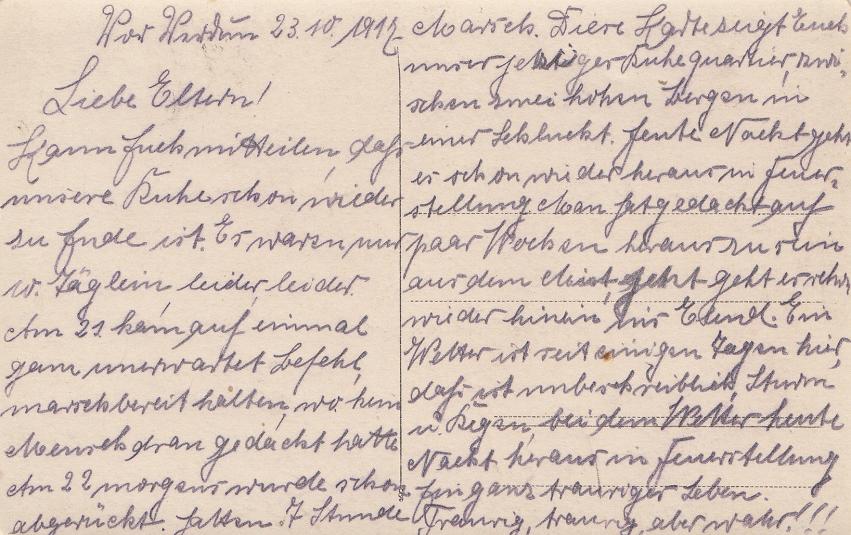 Vor Verdun 23.10.1917
Liebe Eltern!
Kann Euch mitteilen, daß
unsere Ruhe schon wieder
zu Ende ist. Es waren nur
10. Täglein leider, leider.
Am 21. kam auf einmal
ganz unerwartet Befehl,
marschbereit halten, wo kein
Mensch dran gedacht hatte
Am 22 morgens wurde schon
abgerückt. hatten 7 Stunde
Marsch. Diese Kadte zeigt Euch
unser jetziger Ruhequartier, zwi-
schen zwei hohen Bergen in
einer Schlucht. heute Nacht geht
es schon wieder heraus in Feuer-
stellung Man hat gedacht auf
paar Wochen heraus zu sein
aus dem Mist, geht es schon
wieder hinein, ins Elend. Ein
Wetter ist seit einigen Tagen hier,
daß ist unbeschreiblich, Sturm
u. Regen, bei dem Wetter heute
Nacht heraus in Feuerstellung
Ein ganz trauriger Leben.
Traurig, traurig, aber wahr!!!